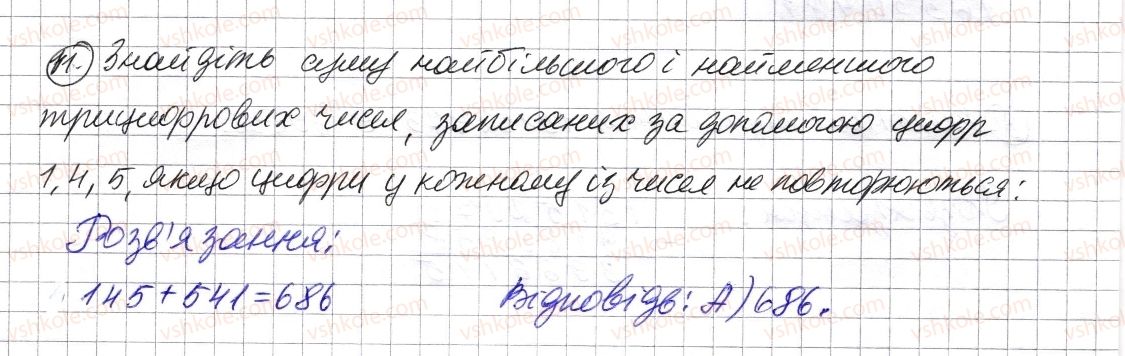 11. Знайдіть суму найбільшого і найменшого
трицифрових чисел, записаних за допомогою цифр
1, 4, 5, якщо цифри у кожному із чисел не повторюються:
Розв'язання:
145+541=686 Відповідь: А) 686.